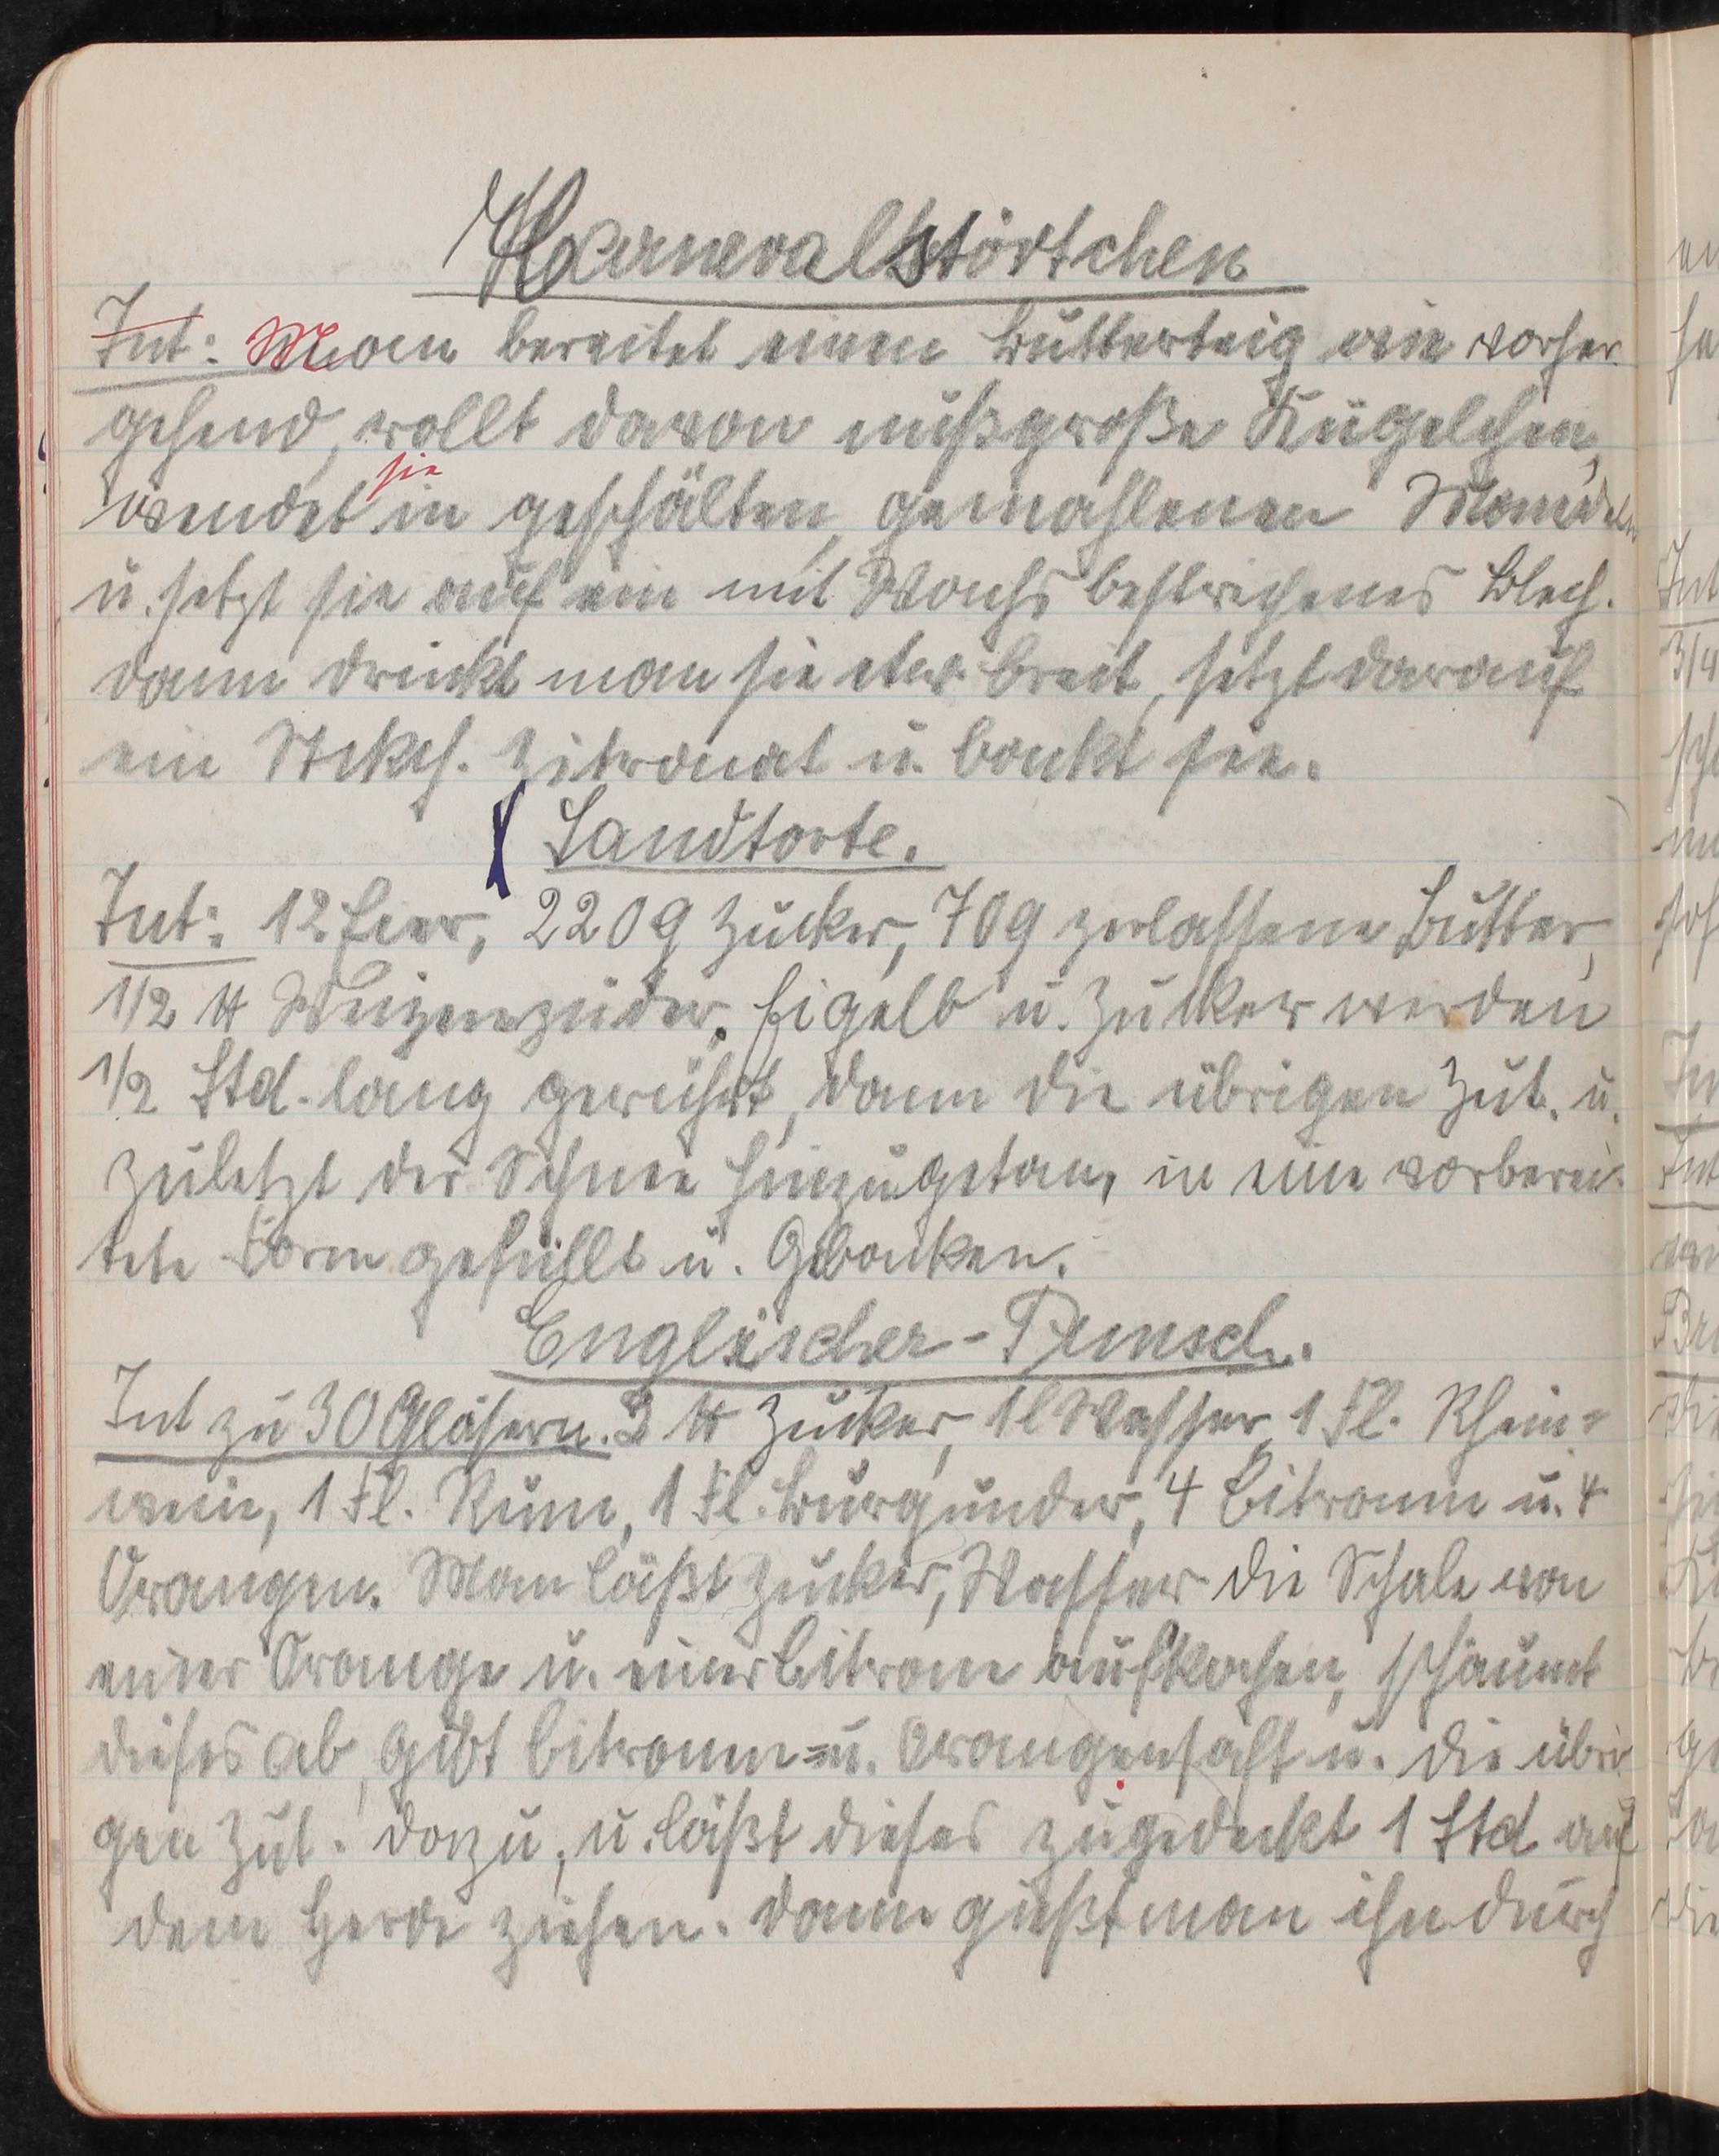 Karnevalstörtchen
Zut: Man bereitet einen Butterteig wie vorher
gehend, rollt davon nußgroße Kügelchen,
wendet sie in geschälten, gemahlenen Mandeln
u. setzt sie auf ein mit Wachs bestrichenes Blech.
dann drückt man sie etw. breit, setzt darauf
ein Stckch. Zitronat u. backt sie.
Sandtorte.
Zut: 12 Eier, 220 g Zucker, 70 g zerlassene Butter,
1/2 ℔ Weizenpuder. Eigelb u. Zucker werden
1/2 Std. lang gerührt, dann die übrigen Zut. u.
zuletzt der Schnee hinzugetan, in eine vorberei-
tete Form gefüllt u. Gebacken.
Englischer-Punsch.
Zut zu 30 Gläsern. 3 ℔ Zucker, 1 l Wasser, 1 Fl. Rhein=
wein, 1 Fl. Rum, 1 Fl. Burgunder, 4 Citronen u. 4
Orangen. Man läßt Zucker, Wasser die Schale von
einer Orange u. einer Citrone aufkochen, schäumt
dieses ab, gibt Citronen= u. Orangensaft u. die übri
gen Zut. dazu, u. läßt dieses zugedeckt 1 Std auf
dem Herde ziehen. Dann gießt man ihn durch